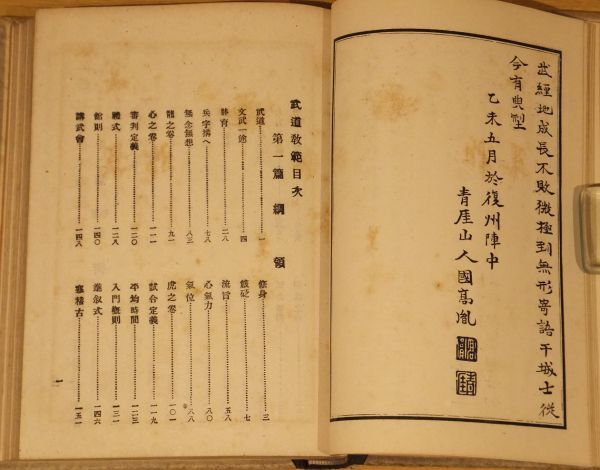 經地成長不敗微極到無形寄語干城士從
今有典型
乙未五月於復州陣中
青厓山人國高胤
武道敎範目次
第一篇 綱領
武道……一
修身……三
文武一途……四
鍼砭……七
體育……二八
流旨……五八
兵字構へ……七八
心氣力……八〇
無念無想……八三
氣位……八八
龍之卷……九一
虎之卷……一〇一
心之卷……一一一
試合定義……一一九
審判定義……
平均時間……一二三
禮式……一二八
入門槪則……一三一
館則……一四〇
叙式……一四六
講武會……一四八
寒稽古……一五一
一